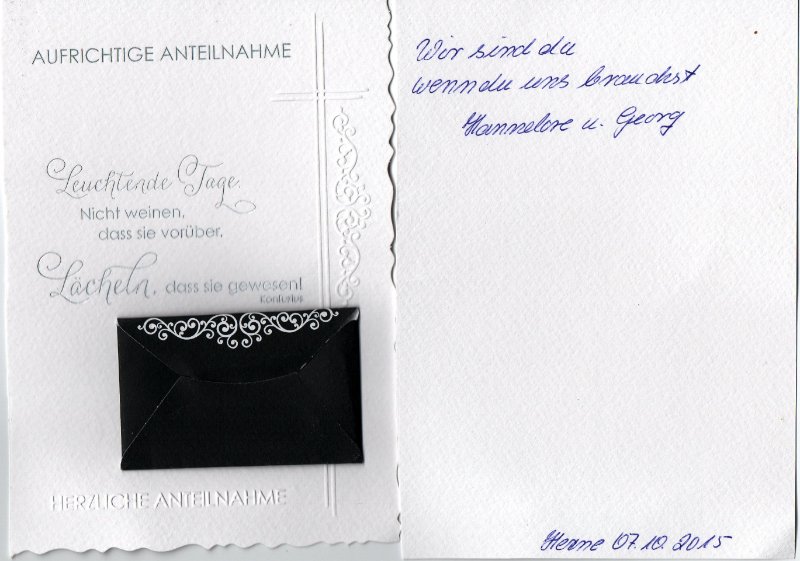 AUFRICHTIGE ANTEILNAHME
Leuchtende Tage.
Nicht weinen,
dass sie vorüber.
Lächeln, dass sie gewesen!
Konfuzius
HERZLICHE ANTEILNAHME
Wir sind da
wenn du uns brauchst
Hannelore u. Georg
Herne 07.10.2015